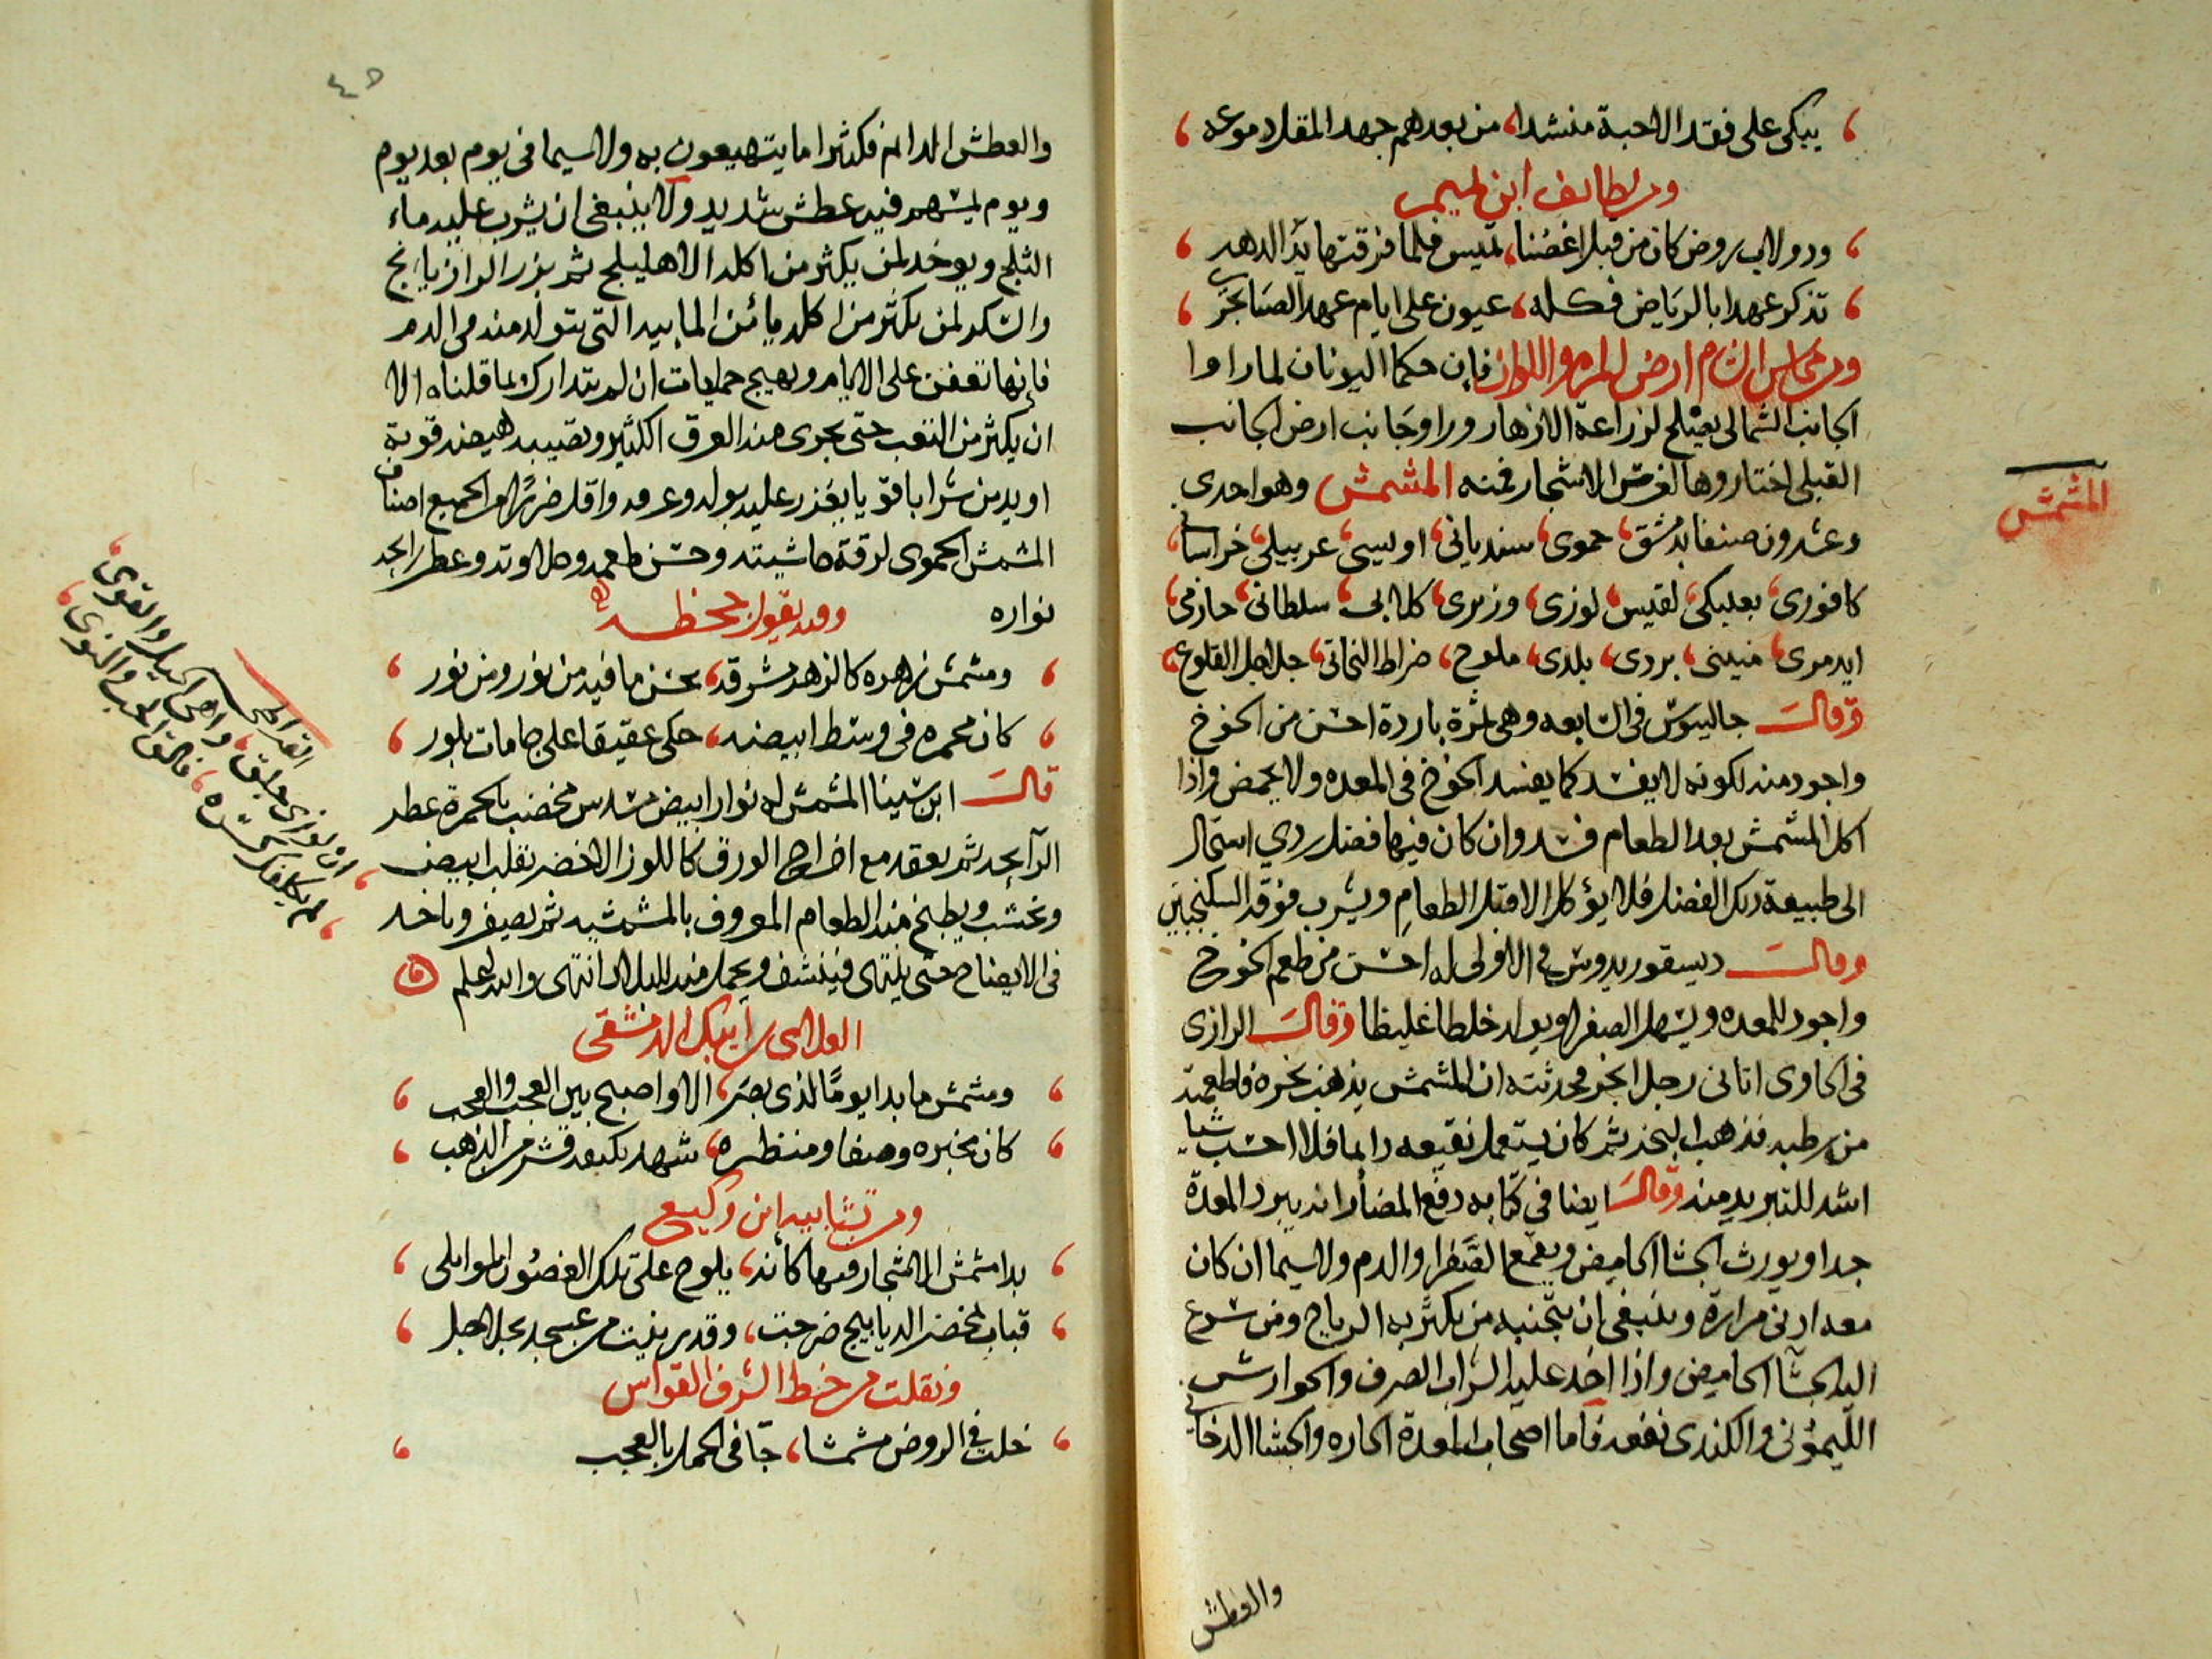 يبكي على فقد الاحبة منشدا، من بعدهم جهد المقل دموعه
ومن لطائف ابن تميم
ودولاب روض كان من قبل اغصُنا، تميس فلما فرقتها يدُ الدهر
تذكر عهدا بالرياض فكله، عيون على ايام عهد الصبا تجري
ومن محاسن الشام ارض المزه واللوان فإن حكما اليونان لما راوا
الجانب الشمالي يصلح لزراعة الازهار وراوا جانب ارض الجانب
القبلي اختاروها لغرس الاشجار فمنه المشمش وهو احدي
المشمش
وعشرون صنفا بدمشق، حموى، سندياني، اويسي، عربيلي، خراساني
كافورى، بعلبكي، لقيس، لوزى، وزيرى، كلابي، سلطاني، حازمى
ايدمرى، سنينى، بردى، بلدى، ملوح، ضراط النحاتى، جلاجل القلوع
وقال جالينوس في السابعه وهي ثمرة باردة احسن من الخوخ
واجود منه لكونه لا يفسد كما يفسد الخوخ في المعده ولا يحمض واذا
اكل المشمش بعد الطعام فسد وان كان فيها فضل ردي استحال
الى طبيعة ذلك الفضل فلا يؤكل الا قبل الطعامِ ويشرب فوقه السكنجبين
وقال ديسقوريدوس في الاولى له احسن من طعم الخوخ
واجود للمعده ويسهل الصفرا ويولد خلطا غليظا وقال الرازى
في الحاوى اتانى رجل ابخر فحدثته ان المشمش يذهب بخره فاطعمته
من رطبه فذهب البخر ثم كان يستعمل نقيعه دايما فلا احسب شيا
اشد للتبريد منه وقال ايضا في كتابه دفع المضار انه يبرد المعدة
جدا ويورث الجشا الحامض ويقمع الصفرا والدم ولا سيما ان كان
معه ادنى مرارة وينبغى ان يتجنبه من يكثر به الرياح ومن يسرع
اليه الجشآ الحامض واذا اخذ عليه الشراب الصرف والجوارش
الليمونى والكندرى نفعه فاما اصحاب المعدة الحاره والجشا الدخاني
والعطش
٤٥
والعطش الدايم فكثيرا ما ينتفعون به ولا سيما في يوم بعد يوم
ويوم يشهر فيه عطش شديد ولا ينبغى ان يشرب عليه ماء
الثلج ويوخذ لمن يكثر من اكله الاهليلج ثم بزر الرازيانج
والسكر لمن يكثر من اكله يامن المايه التى يتولد منه في الدم
فإنها تعفن على الايام ويهيج حميات ان لم يتدارك بما قلناه الا
ان يكثر من التعب حتى يجرى منه العرق الكثير وتصيبه هيضه قوية
او يدمن شرابا قويا يغزر عليه بوله وعرقه واقل ضررا من الجميع اصناف
المشمش الحموى لرقة حاشيته وحسن طعمه وحلاوته وعطر رايحة
نواره وفيه يقول جحظه
ومشمش زهره كالزهر مشرقه، بحسن ما فيه من نور ومن نور
كان محمره في وسط ابيضه، حكى عقيقا على جامات بلور
قال ابن سينا المشمش له نوار ابيض مسدس مخضب بالحمرة عطر
الرآيحه ثم يعقد مع اخراج الورق كاللوز الاخضر بقلب ابيض
وتخشب ويطبخ منه الطعام المعروف بالمشمشيه ثم يصفر وياخذ
في الايضاح حتى ينتهى فينشف ويعمل منه البلال انتهى والله اعلم
العلا الى بن ايبك الدمشقى
ومشمش ما بدا يومًا لذى بصر، الا واصبح بين العجب والعجب
كان مخبره وصفا ومنظره، شهد بكيفه قشر من الذهب
ومن تشابيه ابن وكيع
بدا مشمش الاشجار فيها كانه، يلوح على تلك الغصون الموايلى
قباب بخضر الديابيج ضرجت، وقد زينت من عسجد بجلاجل
ونقلت من خط الشرف القواس
خلت في الروض مشمشا، جآ في الحمل بالعجب
القيراطى